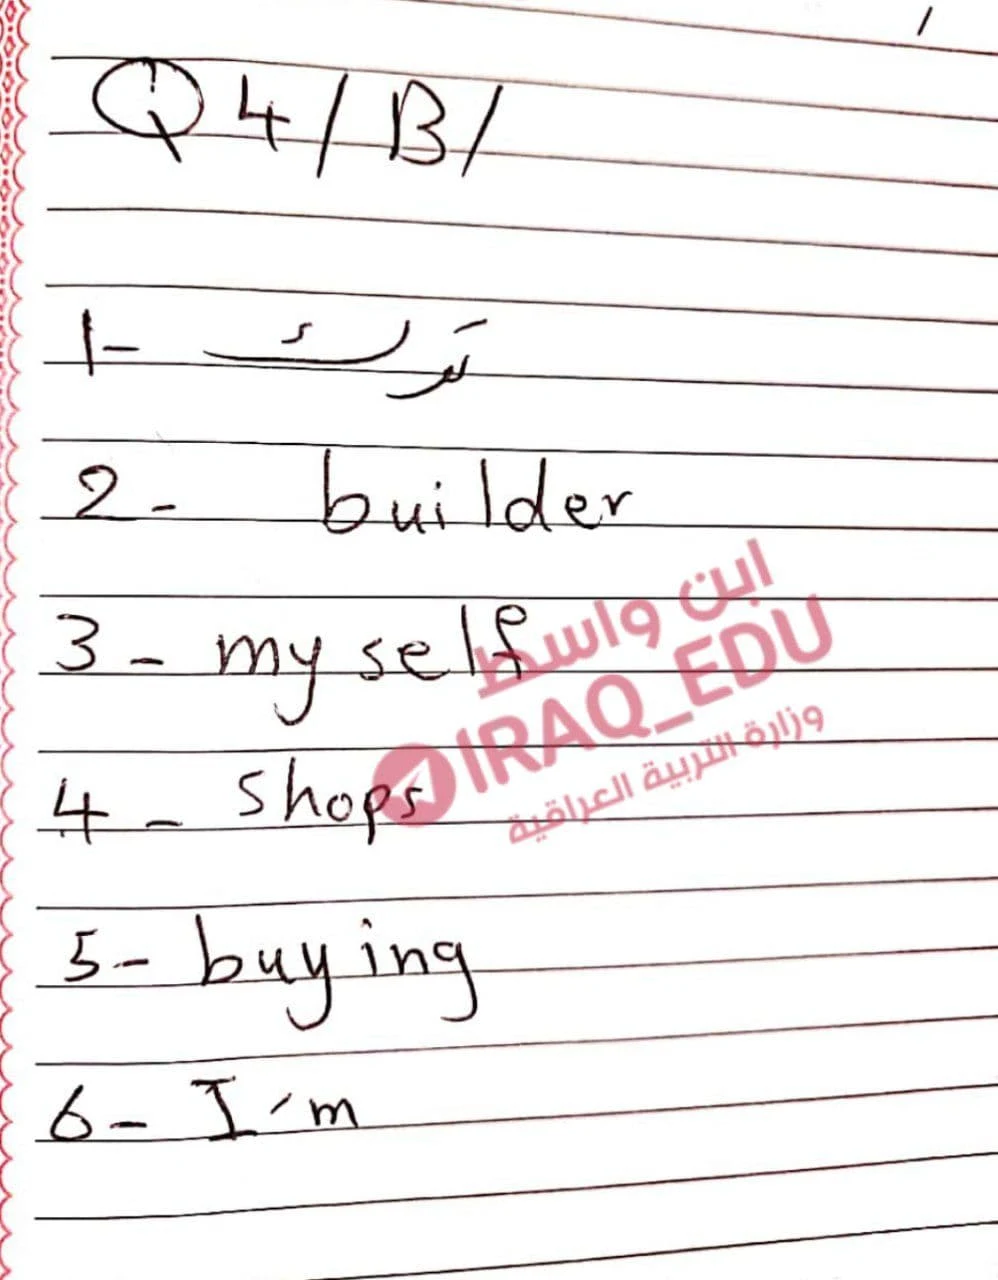 Q4/B/
1- ترك
2- builder
3- myself
4- shops
5- buying
6- I'm
ابن واسط
IRAQ_EDU
وزارة التربية العراقية